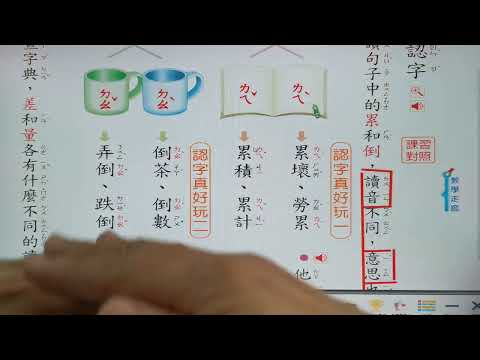 認字
課習
對照
教學走廊
讀句子中的累和倒，讀音不同，意思也
認字真好玩一
ㄌㄟˋ
累壞、勞累
ㄌㄟˇ
累積、累計
他
認字真好玩二
ㄉㄠˋ
倒茶、倒數
ㄉㄠˇ
弄倒、跌倒
字典，差和量各有什麼不同的